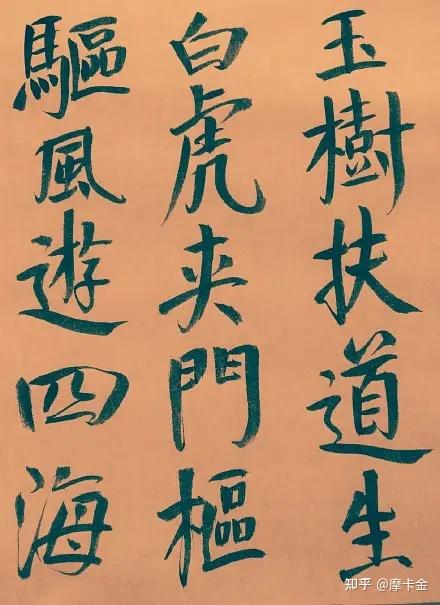 玉樹扶道生
白虎夾門樞
驅風遊四海
知乎 @摩卡金